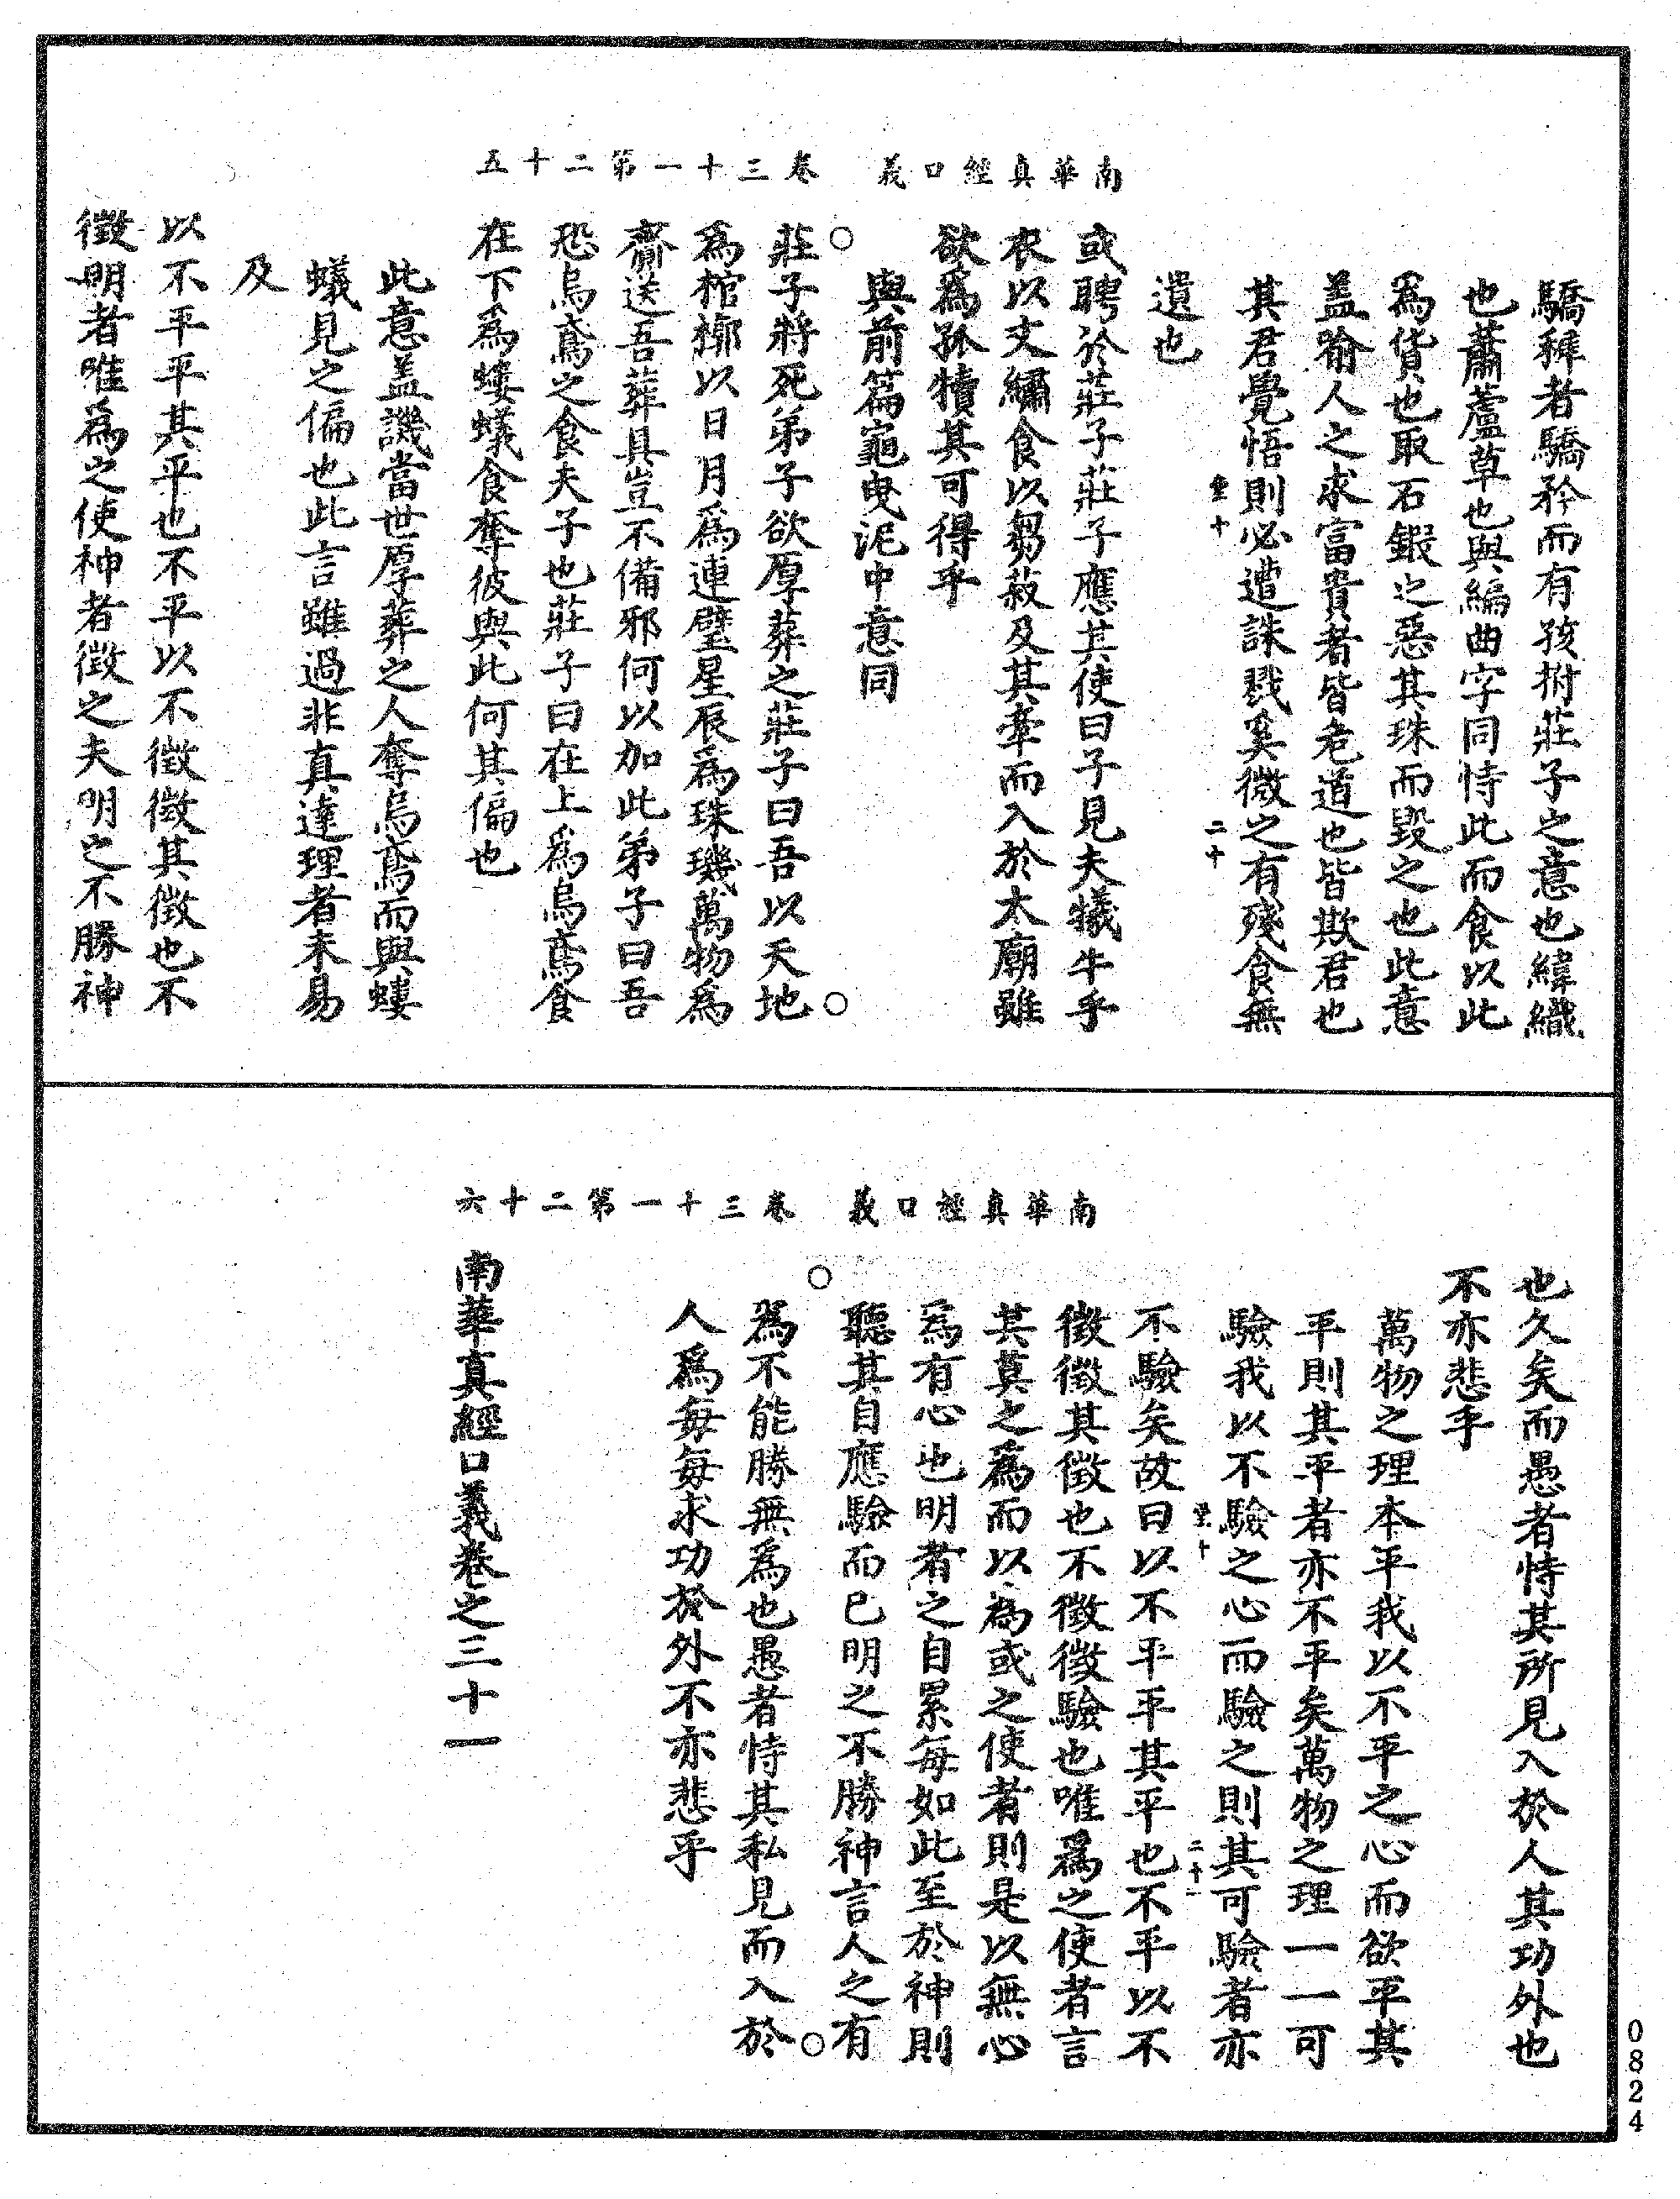 南華真經口義　卷三十一第二十五
驕稺者驕矜而有孩拊莊子之意也緯織
也蕭蘆草也與編曲字同恃此而食以此
為貨也取石鍜之惡其珠而毀之也此意
盖喻人之求富貴者皆危道也皆欺君也
其君覺悟則必遭誅戮奚微之有殘食無
二十
遺也
或聘於莊子莊子應其使曰子見夫犧牛乎
衣以文繡食以芻菽及其牽而入於太廟雖
欲為孤犢其可得乎
與前篇龜曳泥中意同
莊子將死弟子欲厚葬之莊子曰吾以天地
為棺槨以日月為連璧星辰為珠璣萬物為
齎送吾葬具豈不備邪何以加此弟子曰吾
恐烏鳶之食夫子也莊子曰在上為烏鳶食
在下為螻蟻食奪彼與此何其偏也
此意盖譏當世厚葬之人奪烏鳶而與螻
蟻見之偏也此言雖過非真達理者未易
及
以不平平其平也不平以不徵徵其徵也不
徵明者唯為之使神者徵之夫明之不勝神
南華真經口義　卷三十一第二十六
也久矣而愚者恃其所見入於人其功外也
不亦悲乎
萬物之理本平我以不平之心而欲平其
平則其平者亦不平矣萬物之理一一可
驗我以不驗之心而驗之則其可驗者亦
二十一
不驗矣故曰以不平平其平也不平以不
徵徵其徵也不徵徵驗也唯為之使者言
其莫之為而以為或之使者則是以無心
為有心也明者之自累每如此至於神則
聽其自應驗而已明之不勝神言人之有
為不能勝無為也愚者恃其私見而入於
人為每每求功於外不亦悲乎
南華真經口義卷之三十一
0824